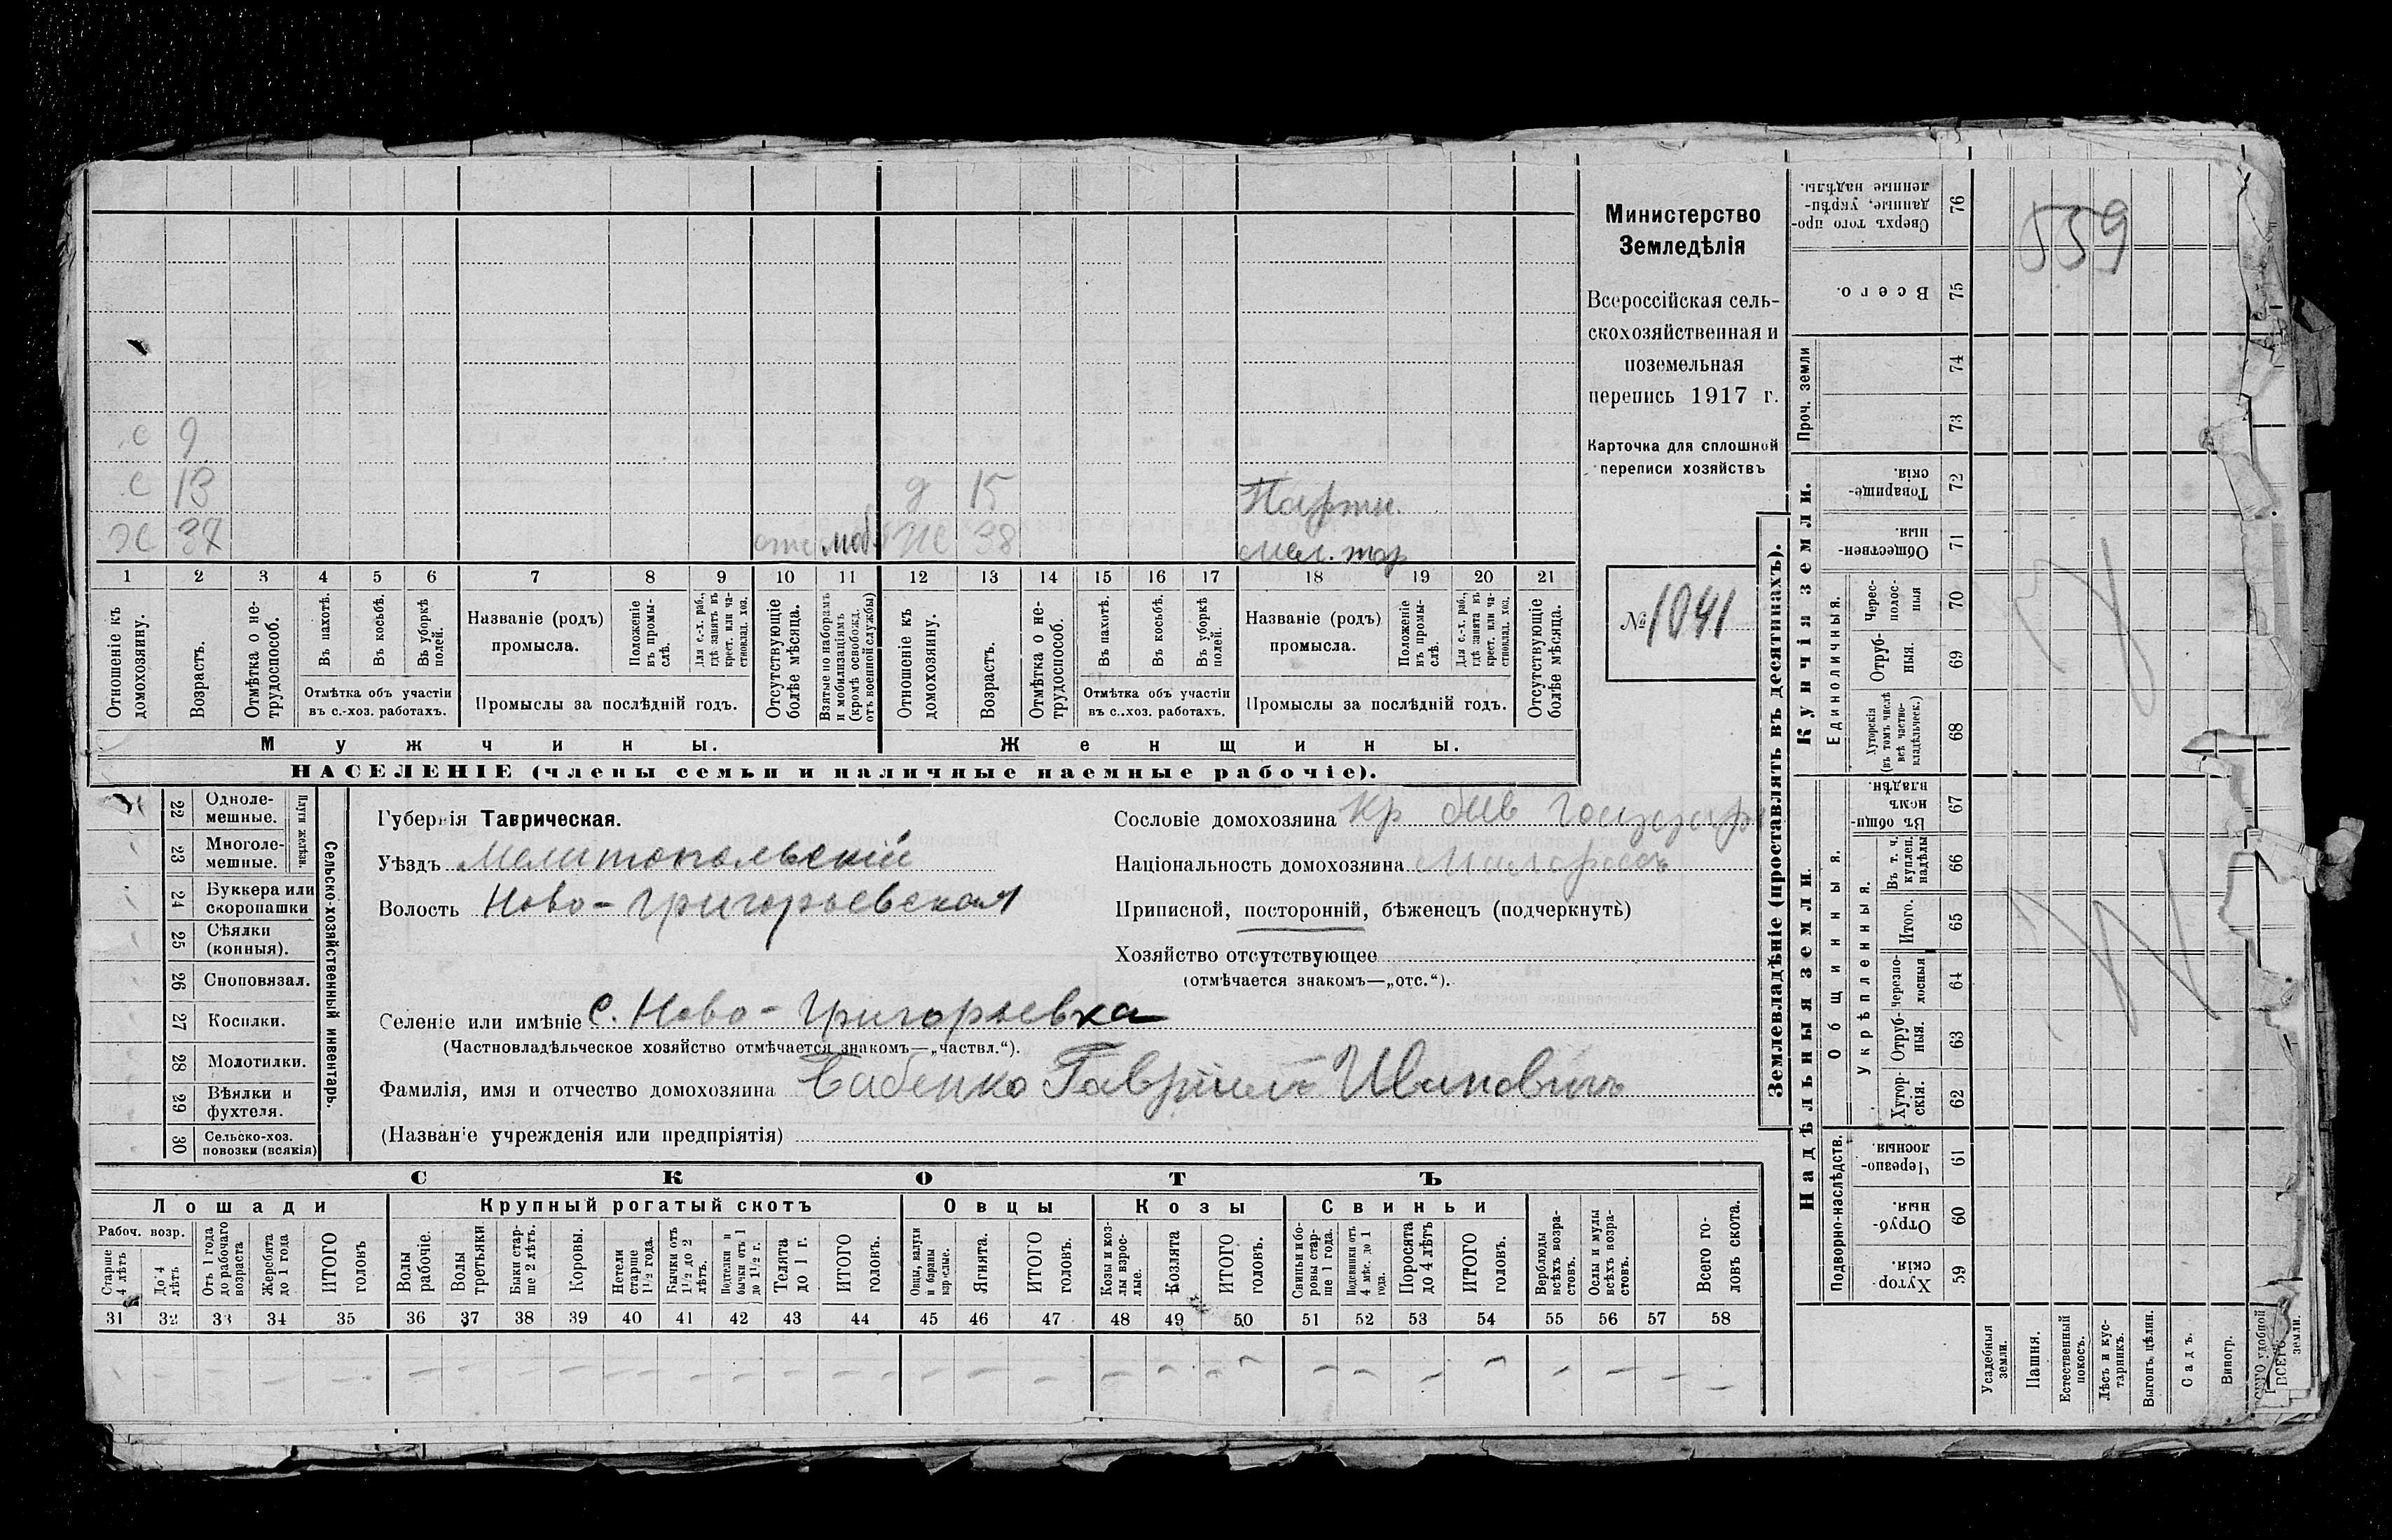 с 9
с 13 д 15
Х 37 отс моб Ж 38
мел. тор
1 2 3 4 5 6 7 8 9 10 11 12 13 14 15 16 17 18 19 20 21
Отношеніе къ домохозяину.
Возрастъ.
Отмѣтка о нетрудоспособ.
Въ пахотѣ.
Въ косьбѣ.
Въ уборкѣ полей.
Отмѣтка объ участіи
въ с.-хоз. работахъ.
Названіе (родъ)
промысла.
Положеніе въ промыслѣ.
Для с.-х. раб., гдѣ занятъ въ крест. или частновлад. хоз.
Промыслы за послѣдній годъ.
Отсутствующіе болѣе мѣсяца.
Взятые по наборамъ и мобилизаціямъ (кромѣ освобожд. отъ военной службы)
Отношеніе къ домохозяину.
Возрастъ.
Отмѣтка о нетрудоспособ.
Въ пахотѣ.
Въ косьбѣ.
Въ уборкѣ полей.
Отмѣтка объ участіи
въ с.-хоз. работахъ.
Названіе (родъ)
промысла.
Положеніе въ промыслѣ.
Для с.-х. раб., гдѣ занята въ крест. или частновлад. хоз.
Промыслы за послѣдній годъ.
Отсутствующіе болѣе мѣсяца.
Мужчины. Женщины.
НАСЕЛЕНІЕ (члены семьи и наличные наемные рабочіе).
Министерство
Земледѣлія
Всероссійская сель-
скохозяйственная и
поземельная
перепись 1917 г.
Карточка для сплошной
переписи хозяйствъ
№ 1041
22 Одноле-
мешные.
23 Многоле-
мешные.
Плуги желѣзн.
24 Буккера или
скоропашки
25 Сѣялки
(конныя).
26 Сноповязал.
27 Косилки.
28 Молотилки.
29 Вѣялки и
фухтеля.
30 Сельско-хоз.
повозки (всякія)
Сельско-хозяйственный инвентарь.
Губернія Таврическая.
Уѣздъ Мелитопольскій
Волость Ново-Григорьевская
Селеніе или имѣніе с. Ново-Григорьевка
(Частновладѣльческое хозяйство отмѣчается знакомъ—„частвл.“).
Фамилія, имя и отчество домохозяина Бабенко Гавріилъ Ивановичъ
(Названіе учрежденія или предпріятія)
Сословіе домохозяина Кр быв госуд
Національность домохозяина Малороссъ
Приписной, посторонній, бѣженецъ (подчеркнуть)
Хозяйство отсутствующее
(отмѣчается знакомъ—„отс.“).
СКОТЪ
Лошади Крупный рогатый скотъ Овцы Козы Свиньи
Рабоч. возр.
Старше 4 лѣтъ
До 4 лѣтъ
Отъ 1 года до рабочаго возраста
Жеребята до 1 года
ИТОГО головъ
Волы рабочіе.
Волы третьяки
Быки старше 2 лѣтъ.
Коровы.
Нетели старше 1½ года.
Бычки отъ 1½ до 2 лѣтъ.
Подтелки и бычки отъ 1 до 1½ г.
Телята до 1 г.
ИТОГО головъ.
Овцы, валухи и бараны взрослые.
Ягнята.
ИТОГО головъ.
Козы и козлы взрослые.
Козлята
ИТОГО головъ.
Свиньи и боровы старше 1 года.
Подсвинки отъ 4 мѣс. до 1 года.
Поросята до 4 лѣтъ
ИТОГО головъ.
Верблюды всѣхъ возрастовъ.
Ослы и мулы всѣхъ возрастовъ.
Всего головъ скота.
31 32 33 34 35 36 37 38 39 40 41 42 43 44 45 46 47 48 49 50 51 52 53 54 55 56 57 58
Землевладѣніе (проставлять въ десятинахъ).
Купчія земли.
Надѣльныя земли.
Проч. земли
Единоличныя.
Общинныя.
Укрѣпленныя.
Подворно-наслѣдств.
Сверхъ того проданные, укрѣпленные надѣлы. 76
559
Всего. 75
74
73
Товарищескія. 72
Общественныя. 71
Черес-
полос-
ныя 70
Отруб-
ныя. 69
Хуторскія (въ томъ числѣ всѣ частновладѣльческ.) 68
Въ общинномъ владѣн. 67
Въ т. ч. куплен. надѣлы 66
Итого. 65
Черезполосныя 64
Отрубныя. 63
Хуторскія. 62
Черезполосныя 61
Отрубныя 60
Хуторскія 59
Усадебныя земли.
Пашня.
Естественный покосъ.
Лѣсъ и кустарникъ.
Выгонъ, цѣлин.
Садъ.
Виногр.
ВСЕГО
земли.